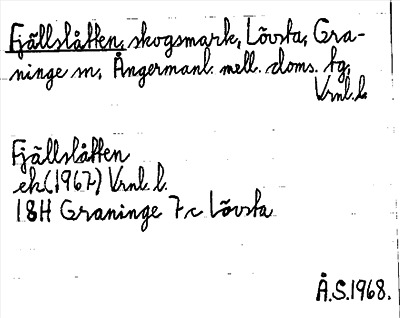 Fjällslåtten, skogsmark, Lövsta, Gra-
ninge sn, Ångermanl. mell. doms. tg,
Vrnl. l.
Fjällslåtten
ek (1967) Vrnl. l.
18H Graninge 7c Lövsta
Å.S. 1968.